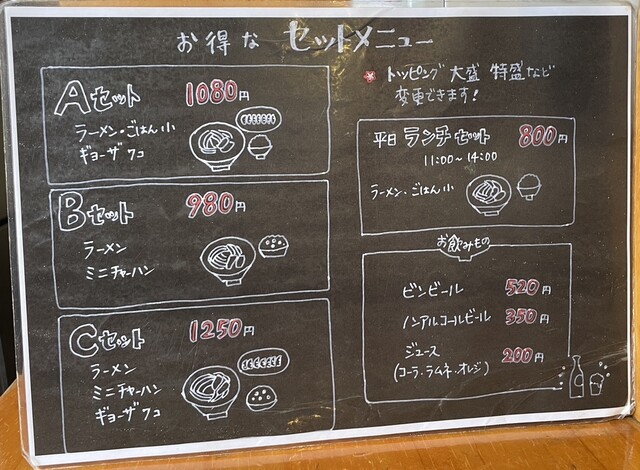 お得な セットメニュー
Aセット 1080円
ラーメン・ごはん小
ギョーザ7コ
Bセット 980円
ラーメン
ミニチャーハン
Cセット 1250円
ラーメン
ミニチャーハン
ギョーザ7コ
トッピング 大盛 特盛など
変更できます!
平日 ランチセット 800円
11:00~14:00
ラーメン・ごはん小
お飲みもの
ビンビール 520円
ノンアルコールビール 350円
ジュース 200円
(コーラ・ラムネ・オレンジ)